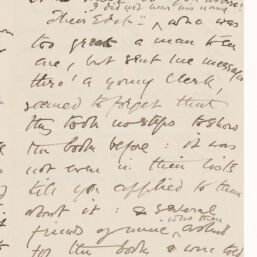 I did not know his name
Their Editr:, who was
too great a man to see
me, but sent me messages
thro' a young Clerk,
seemed to forget that
they took no steps to show
the book before: it was
not even in their lists
till you applied to them
about it: & several
friends of mine, who then asked
for the book were told